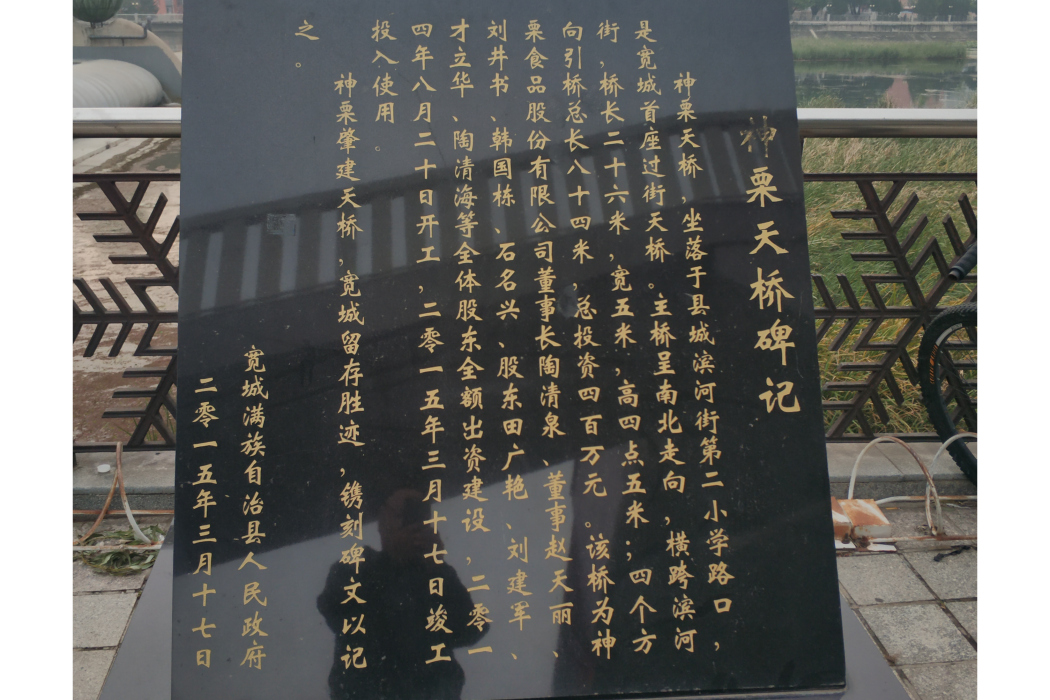 神栗天桥碑记
神栗天桥，坐落于县城滨河街第二小学路口，
是宽城首座过街天桥。主桥呈南北走向，横跨滨河
街，桥长二十六米，宽五米，高四点五米；四个方
向引桥总长八十四米，总投资四百万元。该桥为神
栗食品股份有限公司董事长陶清泉、董事赵天丽、
刘井书、韩国栋、石名兴、股东田广艳、刘建军、
才立华、陶清海等全体股东全额出资建设，二零一
四年八月二十日开工，二零一五年三月十七日竣工
投入使用。
神栗肇建天桥，宽城留存胜迹，镌刻碑文以记
之。
宽城满族自治县人民政府
二零一五年三月十七日